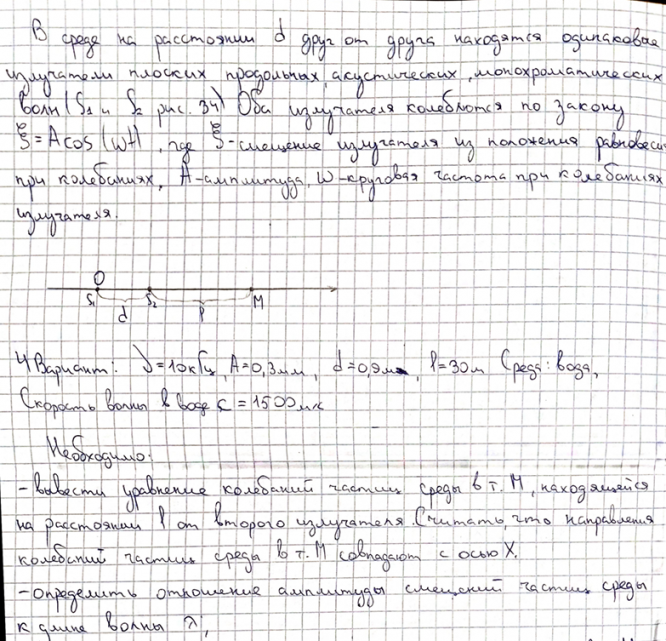 В среде на расстоянии d друг от друга находятся одинаковые
излучатели плоских продольных, акустических, монохроматических
волн (S1 и S2 рис. 34) Оба излучателя колеблются по закону
ξ = A cos (wt), где ξ - смещение излучателя из положения равновесия
при колебаниях, A - амплитуда, w - круговая частота при колебаниях
излучателя.
O
S1 S2 M
d l
4 Вариант: ν = 10 кГц, A = 0,3 мм, d = 0,9 м, l = 30 м Среда: вода,
Скорость волны в воде c = 1500 м/с
Необходимо:
- вывести уравнение колебаний частиц среды в т. М, находящейся
на расстоянии l от второго излучателя. Считать, что направления
колебаний частиц среды в т. М совпадают с осью X.
- определить отношение амплитуды смещений частиц среды
к длине волны λ;